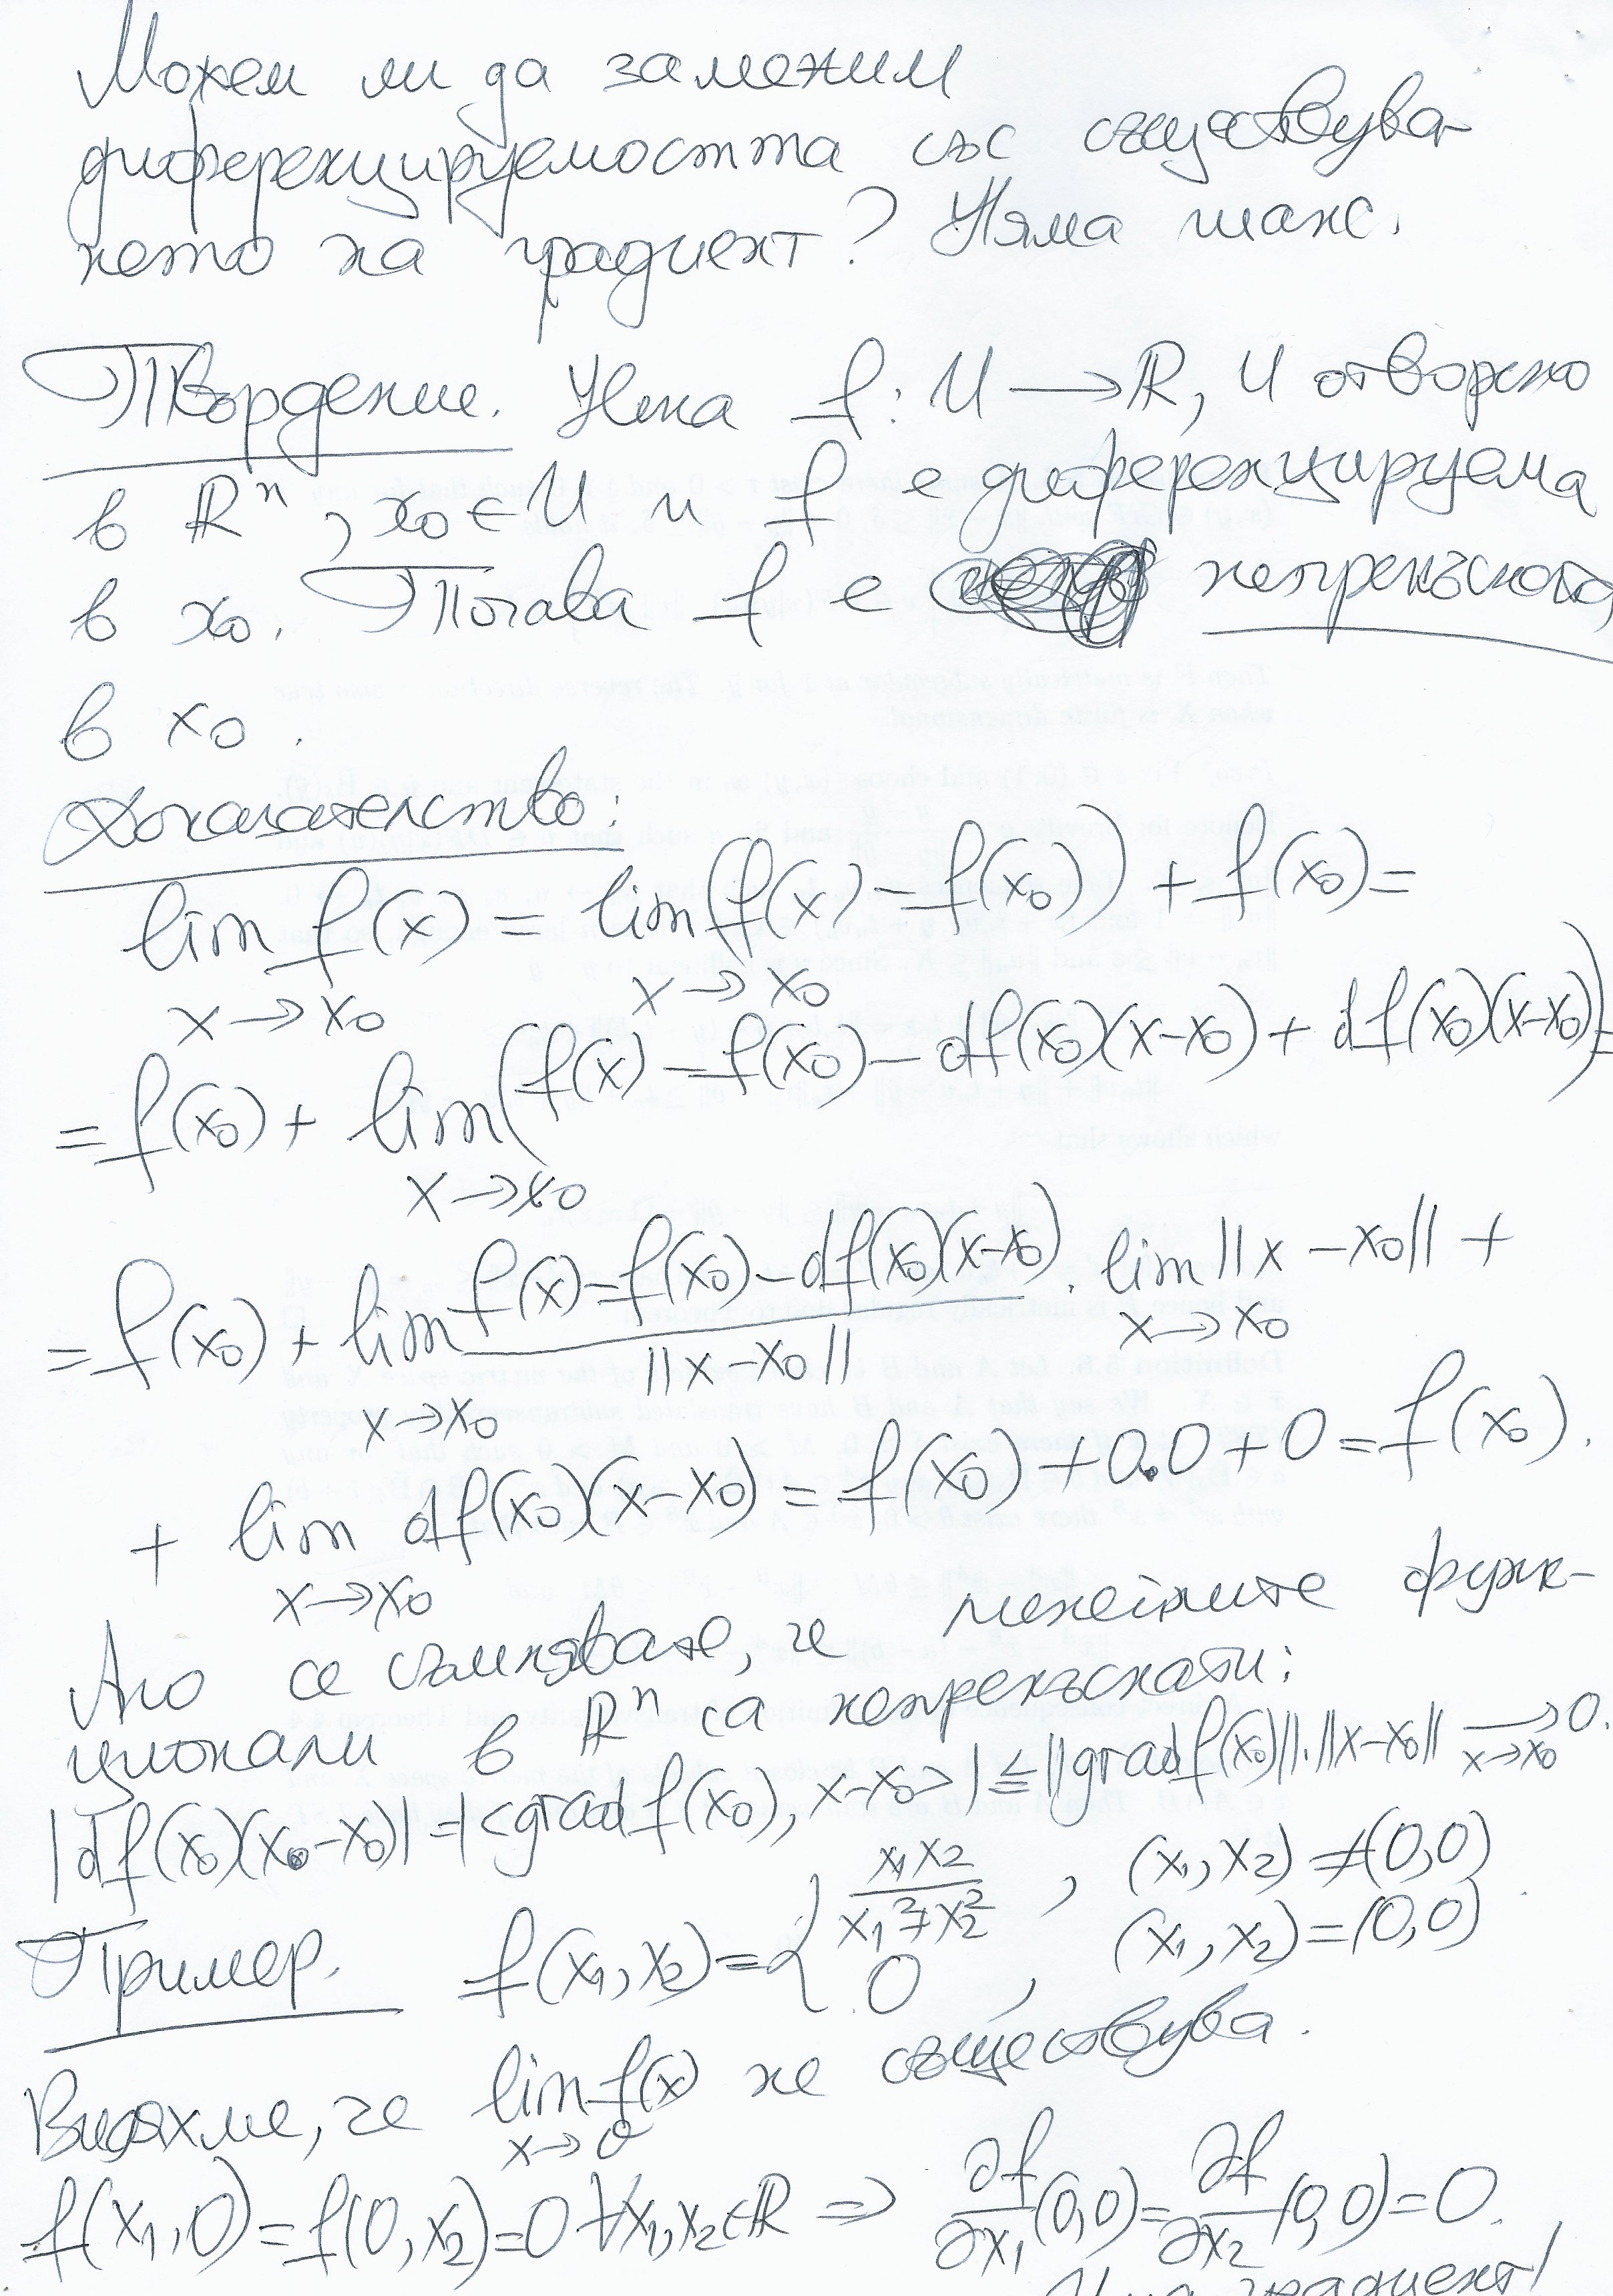 Можем ли да заменим
диференцируемостта със съществува-
нето на градиент? Няма шанс.
Твърдение. Нека f: U → ℝ, U отворено
в ℝⁿ, x₀ ∈ U и f е диференцируема
в x₀. Тогава f е непрекъсната
в x₀.
Доказателство:
lim f(x) = lim (f(x) - f(x₀)) + f(x₀) =
x → x₀ x → x₀
= f(x₀) + lim (f(x) - f(x₀) - df(x₀)(x-x₀) + df(x₀)(x-x₀)) =
x → x₀
= f(x₀) + lim (f(x) - f(x₀) - df(x₀)(x-x₀)) / ||x-x₀|| . lim ||x-x₀|| +
x → x₀ x → x₀
+ lim df(x₀)(x-x₀) = f(x₀) + 0.0 + 0 = f(x₀).
x → x₀
Ако се съмнявате, че линейните функ-
ционали в ℝⁿ са непрекъснати:
|df(x₀)(x₀-x₀)| = |<grad f(x₀), x-x₀>| ≤ ||grad f(x₀)||.||x-x₀|| → 0.
x → x₀
Пример. f(x₁, x₂) = { x₁x₂ / (x₁² + x₂²) , (x₁, x₂) ≠ (0,0)
0 , (x₁, x₂) = (0,0)
Видяхме, че lim f(x) не съществува.
x → 0
f(x₁, 0) = f(0, x₂) = 0 ∀x₁, x₂ ∈ ℝ ⇒ ∂f/∂x₁ (0,0) = ∂f/∂x₂ (0,0) = 0.
Има градиент!